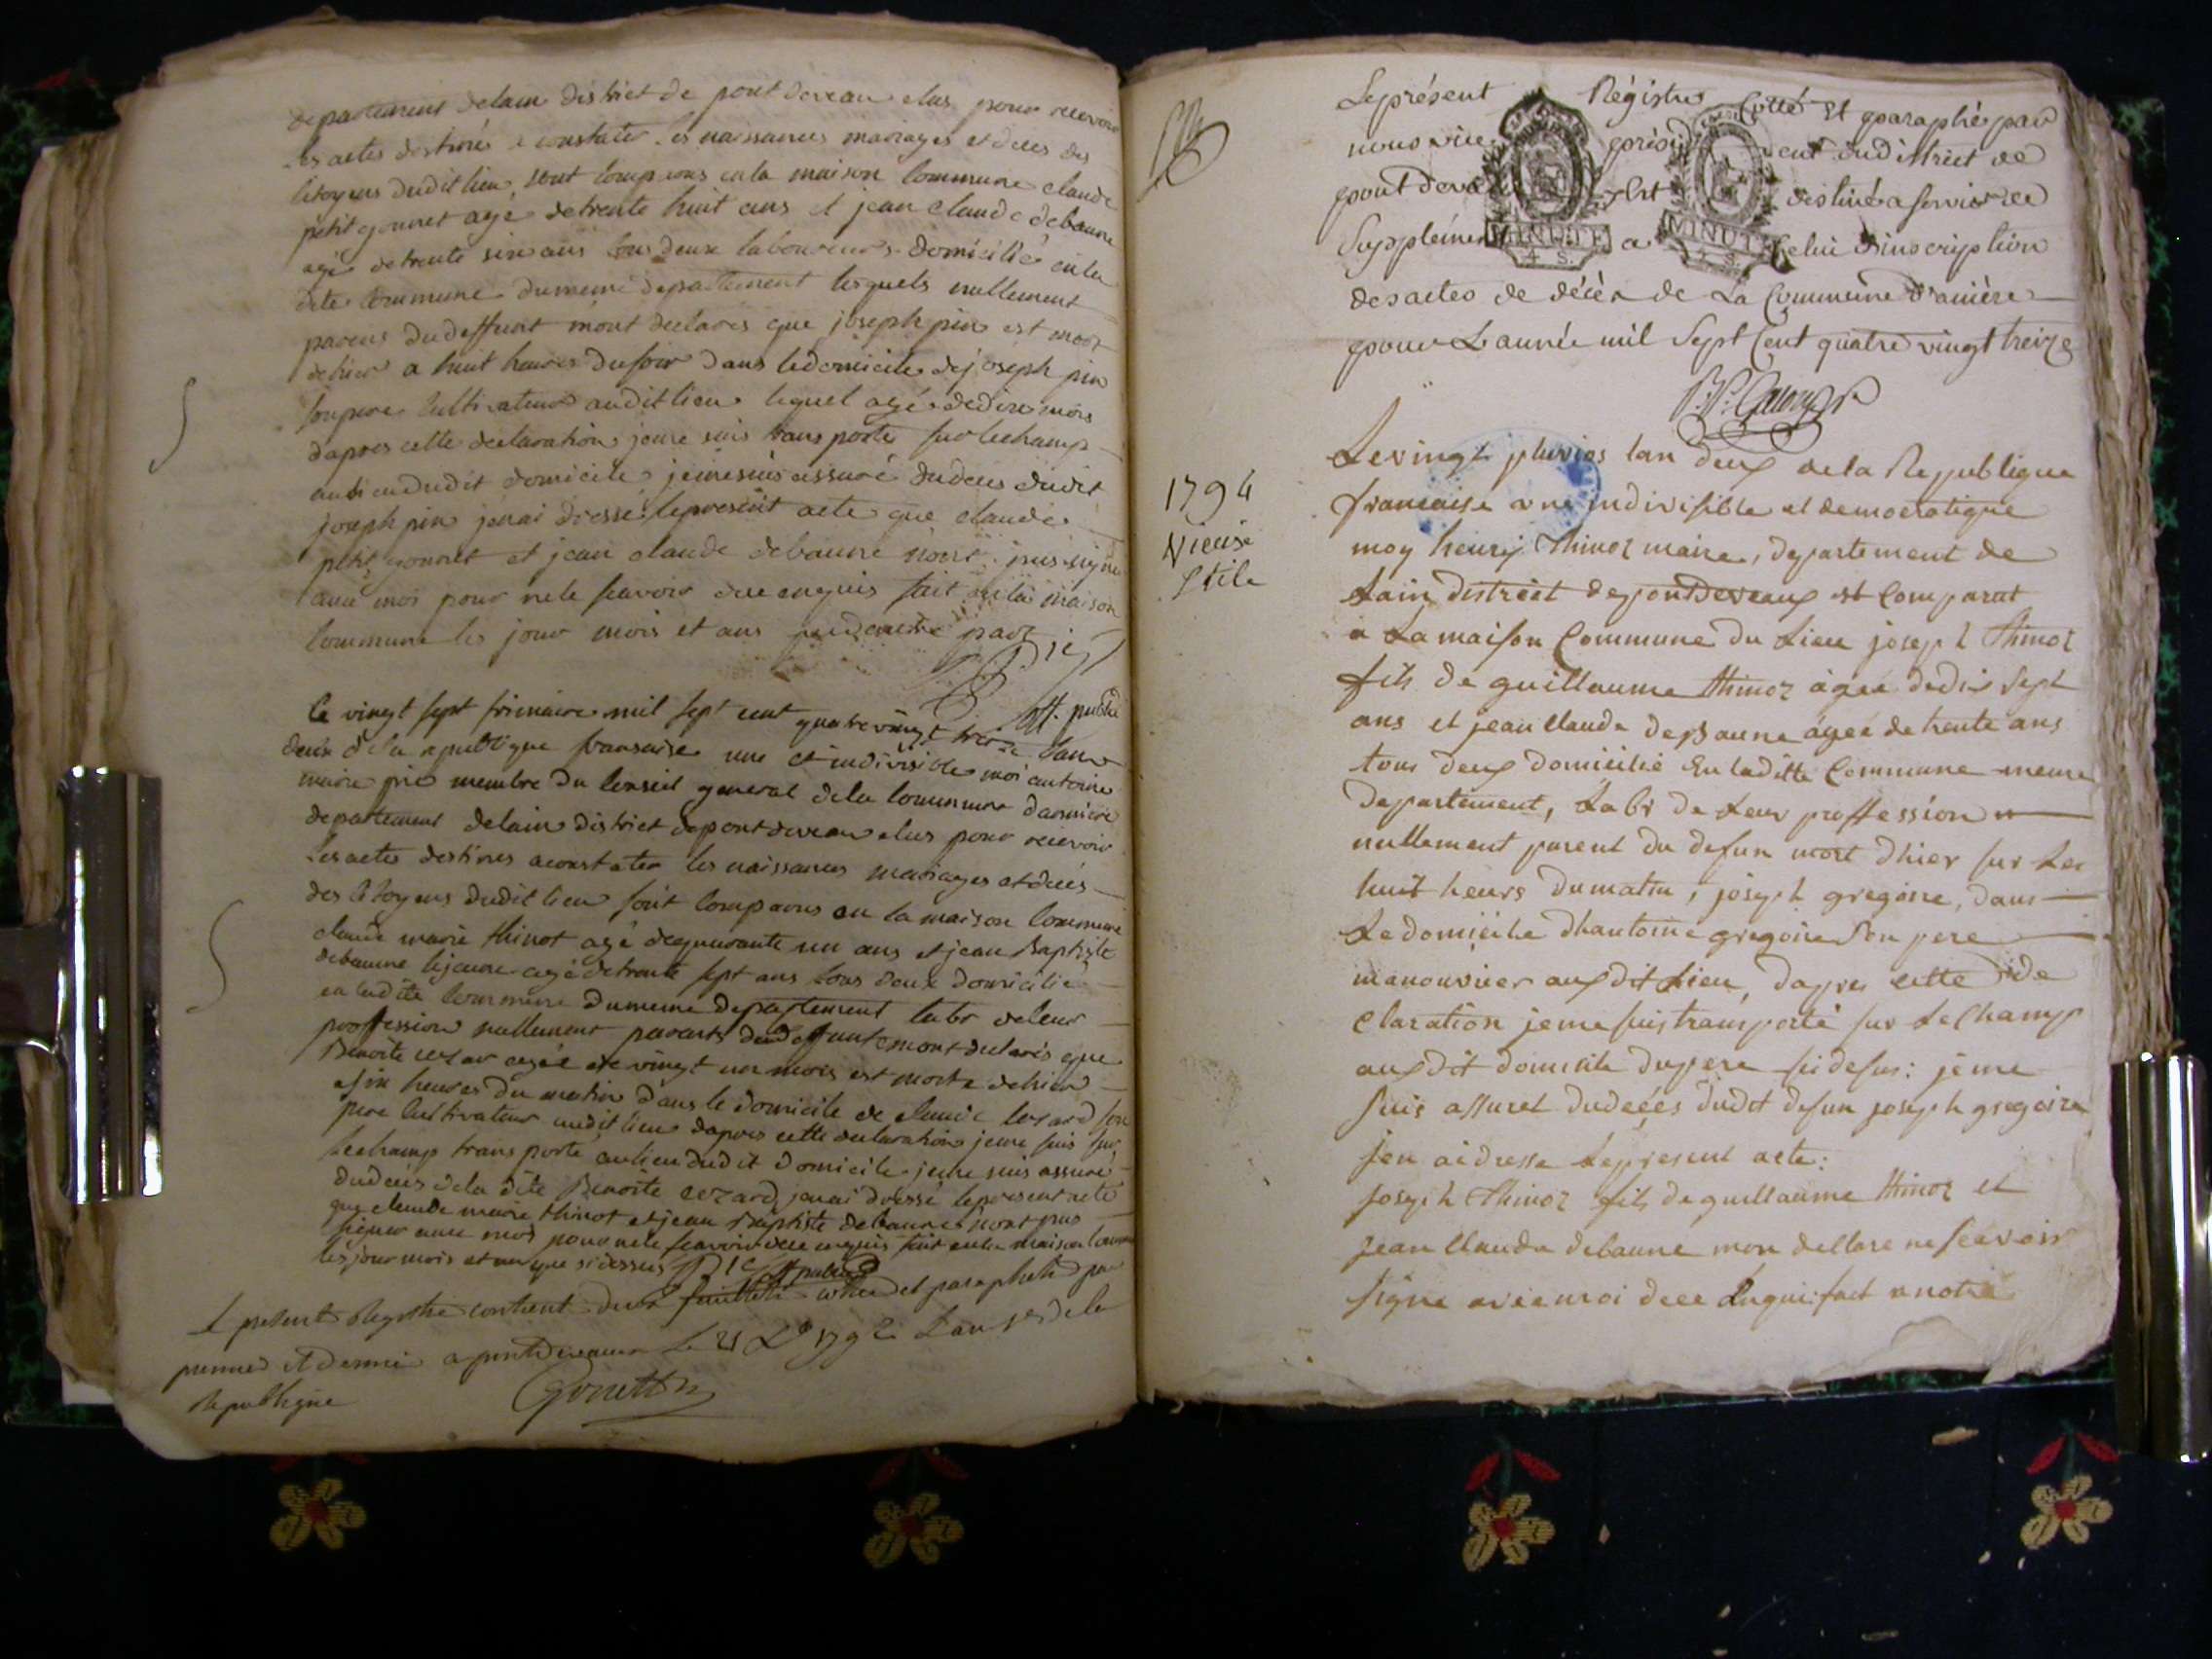 departement delain district de pont deveau elus pour recevoir
les actes destinés a constater les naissances mariages et deces des
citoyens dudit lieu sont comparus en la maison commune claude
petit gonnet agé de trente huit ans et jean claude debaune
agé de trente six ans tous deux laboureurs domicilié en la
dite commune du meme departement lesquels nullement
parens du deffunt mont declarés que joseph pin est mort
dehier a huit heures du soir dans le domicile de joseph pin
son pere cultivateur audit lieu lequel agé de dix mois
dapres cette declaration je me suis transporté sur le champ
au lieu dudit domicile je me suis assuré du deces dudit
joseph pin jen ai dressé le present acte que claude
petit gonnet et jean claude debaune nont pas signé
avec moi pour ne le scavoir de ce enquis fait en la maison
commune les jour mois et ans
pic
off. public
Ce vingt sept frimaire mil sept cent quatre vingt treize lan
deux de la republique fransaise une et indivisible moi antoine
marie pic membre du conseil general de la commune daniere
departement delain district de pont deveau elus pour recevoir
les actes destines a constater les naissances mariages et decés
des citoyens dudit lieu sont comparus en la maison commune
claude marie thinot agé de quarante un ans et jean Baptiste
debaune le jeune agé de trente sept ans tous deux domicilié
en ladite commune du meme departement labr de leur
proffession nullement parents du deffunt mont declarés que
Benoite agée de vingt un mois est morte dehier
a six heures du matin dans le domicile de claude son
pere cultivateur audit lieu dapres cette declaration je me suis sur
le champ transporté au lieu dudit domicile je me suis assuré
du decés de la dite Benoite jen ai dressé le present acte
que claude marie thinot et jean Baptiste debaune nont pas
signer avec moi pour ne le scavoir de ce enquis fait en la maison commune
les jour mois et an que si dessus Pic off public
Le present Registre contient deux feuillets cottés et paraphés par
premier et dernier a pontdevaux le 21 Xbre 1792 Lan 1er de la
Republique
Le présent Régistre Cotté et paraphé par
nous vice président du district de
pont deva Est destiné a servir de
Supplément a Celui d'inscription
des actes de décès de La Commune d'anière
pour L'année mil Sept Cent quatre vingt treize
MINUTE
4 S.
MINUTE
4 S.
1794
Vieuse
Stile
Le vingt pluvios lan deux de la Republique
francaise une indivisible et democratique
moy henry Thinoz maire, departement de
Lain district de pontdevaux est Comparut
a La maison Commune du Lieu joseph Thinoz
fils de guillaume thinoz agée de dix sept
ans et jean Claude deBaune agée de trente ans
tous deux domicilié En laditte Commune meme
departement, Labr de Leur proffession
nullement parent du defun mort dhier sur Les
huit heurs du matin, joseph gregoire, dans
Le domicile dhantoine gregoire Son pere
manouvrier aux dit Lieu, dapres cette de
claration je me suis transporté sur Le Champ
aux dit domicile du pere sidesus: je me
suis assuret du decés dudit defun joseph gregoire
jen ai dresse Le present acte:
joseph Thinoz fils de guillaume thinoz et
jean Claude debaune mon dellare ne scavoir
signe avec moi dece Enqui: fait a notre